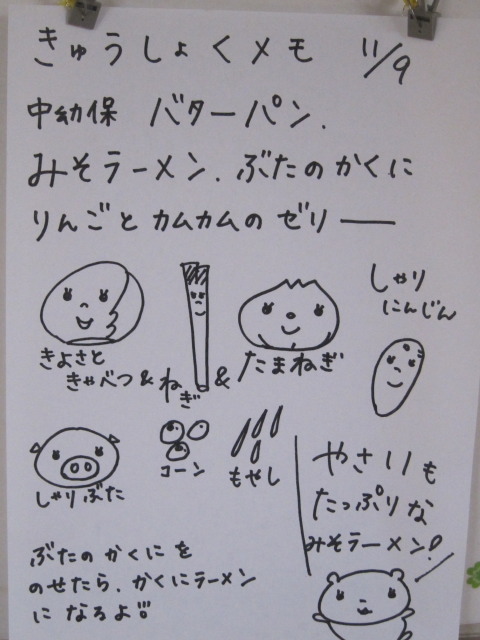 きゅうしょくメモ 11/9
中幼保 バターパン.
みそラーメン.ぶたのかくに
りんごとカムカムのゼリー
しゃり
にんじん
きよさと
きゃべつ&ねぎ&たまねぎ
しゃりぶた
コーン
もやし
やさいも
たっぷりな
みそラーメン!
ぶたのかくにを
のせたら、かくにラーメン
になるよ!!